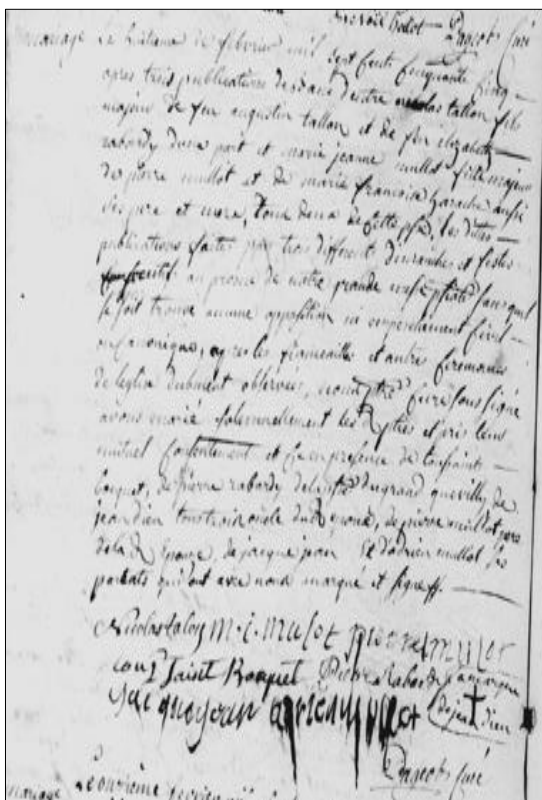 Dagobt Curé
mariage Le huitieme de fevrier mil sept cents cinquante cinq
apres trois publications des bans d'entre nicolas tallon fils
majeur de feu augustin tallon et de feu elizabeth
rabardy d'une part et marie jeanne mullot fille majeure
de pierre mullot et de marie francoise aussi
ses pere et mere, tous deux de cette psse, les dittes
publications faites par trois differents dimanches et festes
au prosne de notre grande messe sans quil
se soit trouvé aucune opposition ni empeschement civil
ou canonique, apres les fiancailles et autres ceremonies
de leglise dubment observées, nous ptre curé sous signé
avons marié solemnellement les d parties et pris leur
mutuel consentement et ce en presence de toussaint
boquet, de pierre rabardy de la psse du grand quevilly de
jean dien oncle du d epoux, de pierre mullot pere
de la d epouse, de jacque jean Et d'adrien mullot les
quí ont avec nous marqué et signé
Nicolas talon m. j. mulot pierre mulot
Saint Boquet Pierre Rabardy la marque
Jacque jean adrien mullot de jean dien
Curé
mariage Le onzieme fevrier